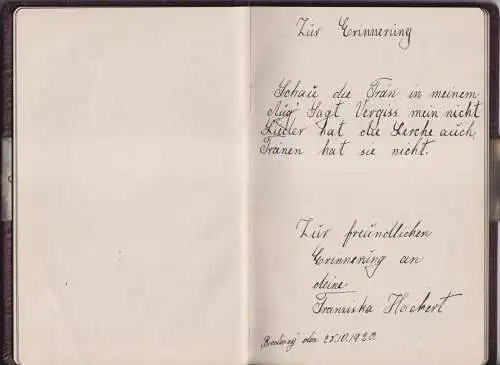 Zur Erinnerung
Schau die Trän in meinem
Aug' Sagt Vergiss mein nicht
Lieder hat die Lerche auch,
Tränen hat sie nicht.
Zur freundlichen
Erinnerung an
deine
Franziska Hackert
den 25.10.1920